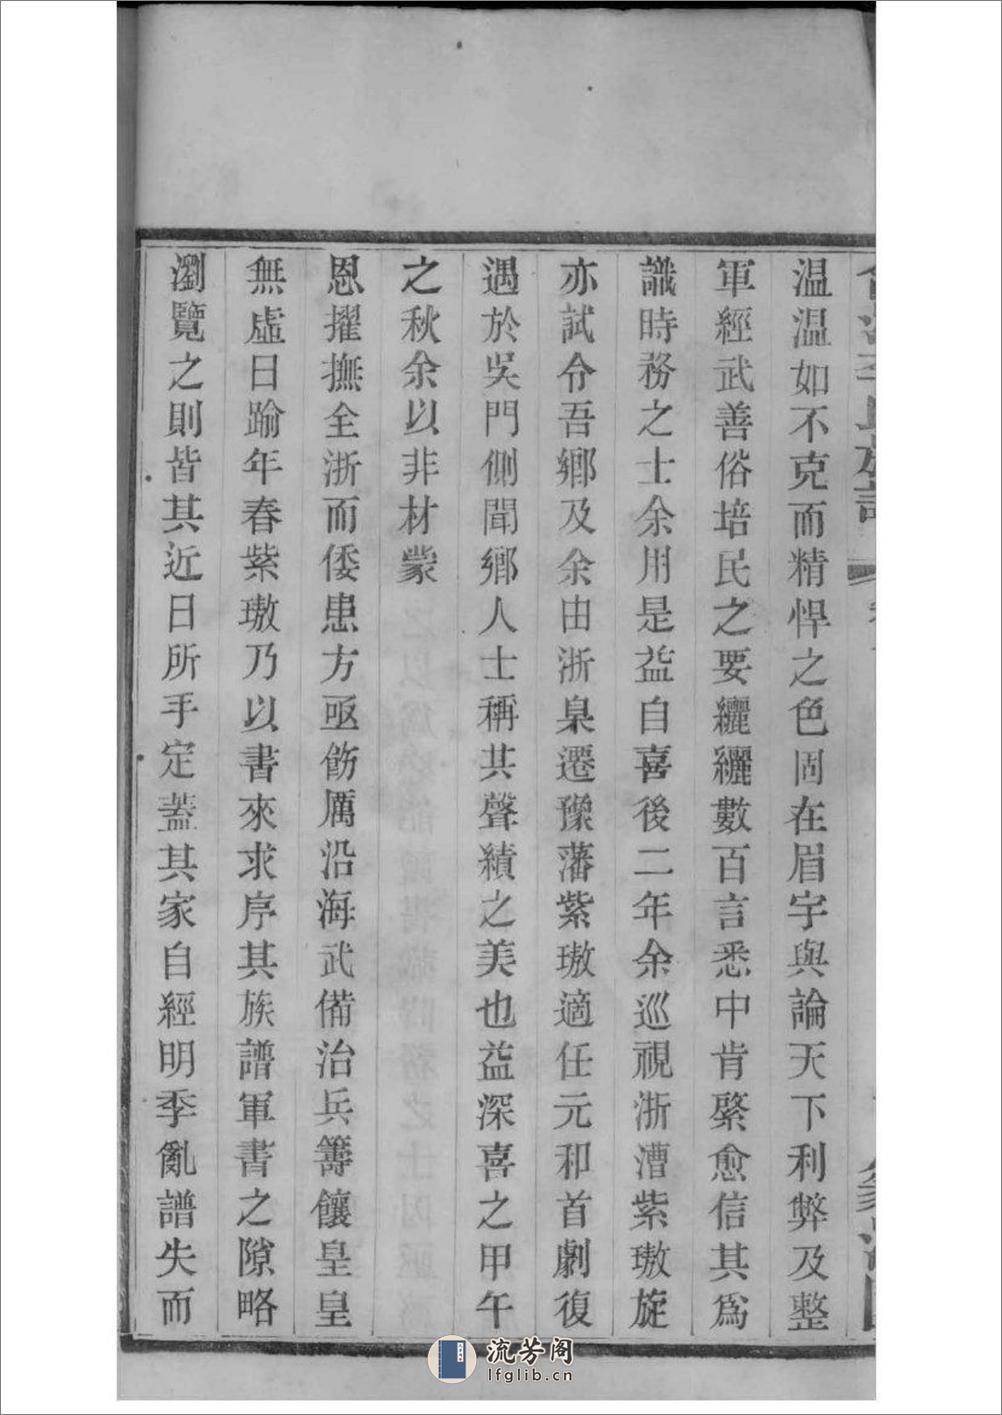 温温如不克而精悍之色固在眉宇與論天下利弊及整
軍經武善俗培民之要纚纚數百言悉中肯綮愈信其爲
識時務之士余用是益自喜後二年余巡視浙漕紫璈旋
亦試令吾鄉及余由浙臬遷豫藩紫璈適任元和首劇復
遇於吳門側聞鄉人士稱其聲績之美也益深喜之甲午
之秋余以非材蒙
恩擢撫全浙而倭患方亟飭厲沿海武備治兵籌饟皇皇
無虛日踰年春紫璈乃以書來求序其族譜軍書之隙略
瀏覽之則皆其近日所手定蓋其家自經明季亂譜失而
流芳阁
lfglib.cn